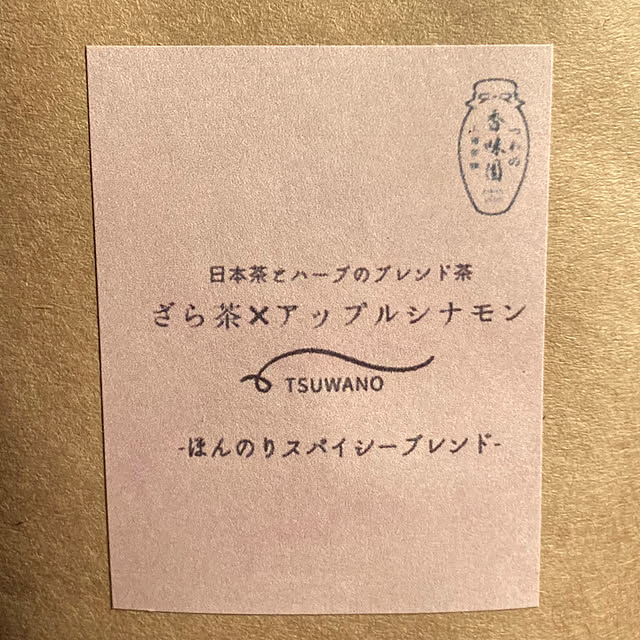 つわの
香味園
日本茶とハーブのブレンド茶
ざら茶×アップルシナモン
TSUWANO
-ほんのりスパイシーブレンド-